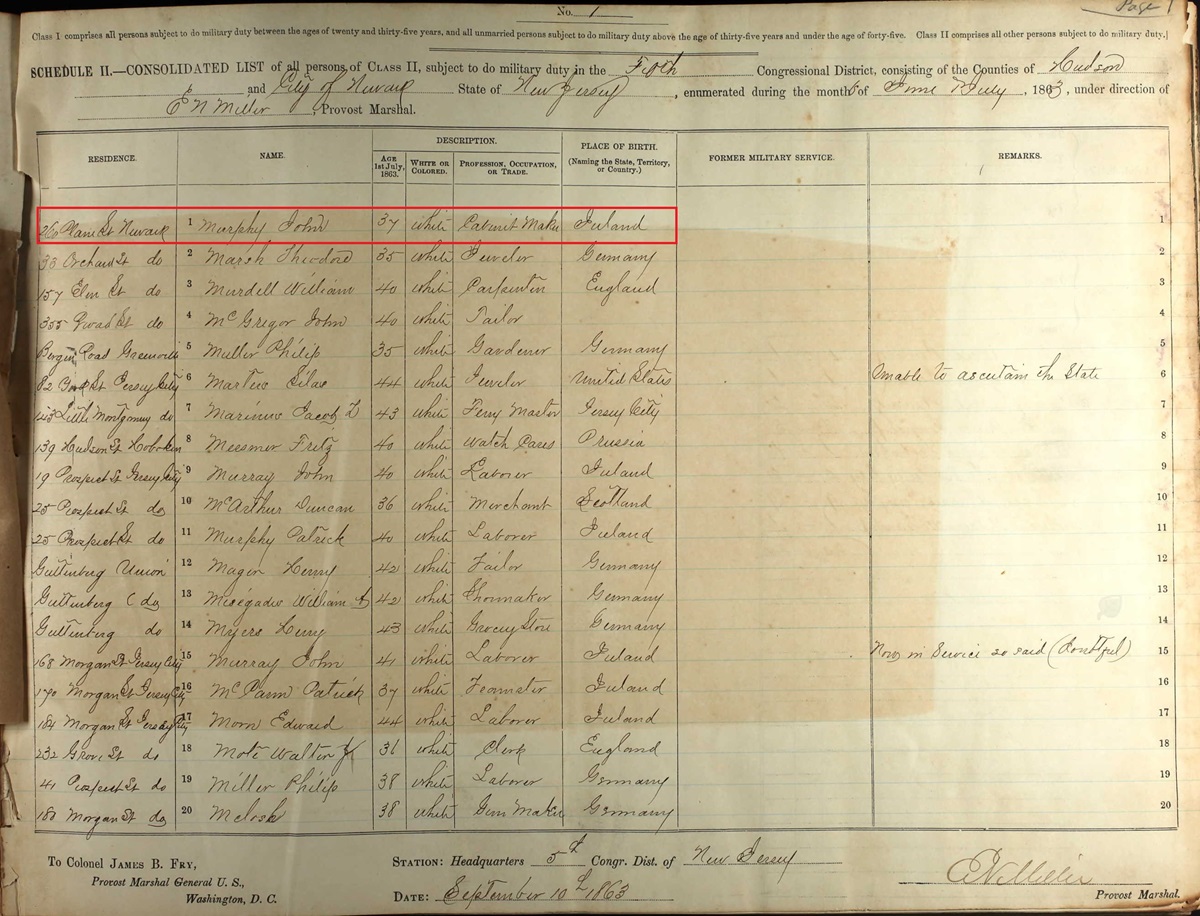 No. 1
Page 1
Class I comprises all persons subject to do military duty between the ages of twenty and thirty-five years, and all unmarried persons subject to do military duty above the age of thirty-five years and under the age of forty-five. Class II comprises all other persons subject to do military duty.
SCHEDULE II.—CONSOLIDATED LIST of all persons of CLASS II, subject to do military duty in the Fifth Congressional District, consisting of the Counties of Hudson
and City of Newark State of New Jersey, enumerated during the months of June & July, 1863, under direction of
E N Miller, Provost Marshal.
RESIDENCE. NAME. DESCRIPTION. PLACE OF BIRTH. (Naming the State, Territory, or Country.) FORMER MILITARY SERVICE. REMARKS.
AGE 1st July, 1863. WHITE OR COLORED. PROFESSION, OCCUPATION, OR TRADE.
260 Plane St Newark 1 Murphy John 37 White Cabinet Maker Ireland 1
38 Orchard St do 2 Marsh Theodore 35 White Jeweler Germany 2
157 Elm St do 3 Murdell William 40 White Carpenter England 3
355 St do 4 McGregor John 40 White Tailor 4
Bergen Road Greenville 5 Muller Philip 35 White Gardener Germany 5
82 St Jersey City 6 Martin Silas 44 White Jeweler United States Unable to ascertain the State 6
143 Little Montgomery do 7 Marinus Jacob 43 White Ferry Master Jersey City 7
139 Hudson St Hoboken 8 Messmer Fritz 40 White Watch Cases Prussia 8
19 Prospect St Jersey City 9 Murray John 40 White Laborer Ireland 9
25 Prospect St do 10 McArthur Duncan 36 White Merchant Scotland 10
25 Prospect St do 11 Murphy Patrick 40 White Laborer Ireland 11
Guttenberg Union 12 Magen Henry 42 White Tailor Germany 12
Guttenberg do 13 William 42 White Shoemaker Germany 13
Guttenberg do 14 Myers Henry 43 White Grocery Store Germany 14
168 Morgan St Jersey City 15 Murray John 41 White Laborer Ireland Now in Service so said (doubtful) 15
170 Morgan St Jersey City 16 Patrick 37 White Teamster Ireland 16
184 Morgan St Jersey City 17 Morn Edward 44 White Laborer Ireland 17
232 Grove St do 18 Mott Walter 31 White Clerk England 18
41 Prospect St do 19 Miller Philip 38 White Laborer Germany 19
180 Morgan St do 20 Melosh 38 White Gun Maker Germany 20
To Colonel JAMES B. FRY,
Provost Marshal General U. S.,
Washington, D. C.
STATION: Headquarters 5th Congr. Dist. of New Jersey
DATE: September 10th 1863
E N Miller
Provost Marshal.